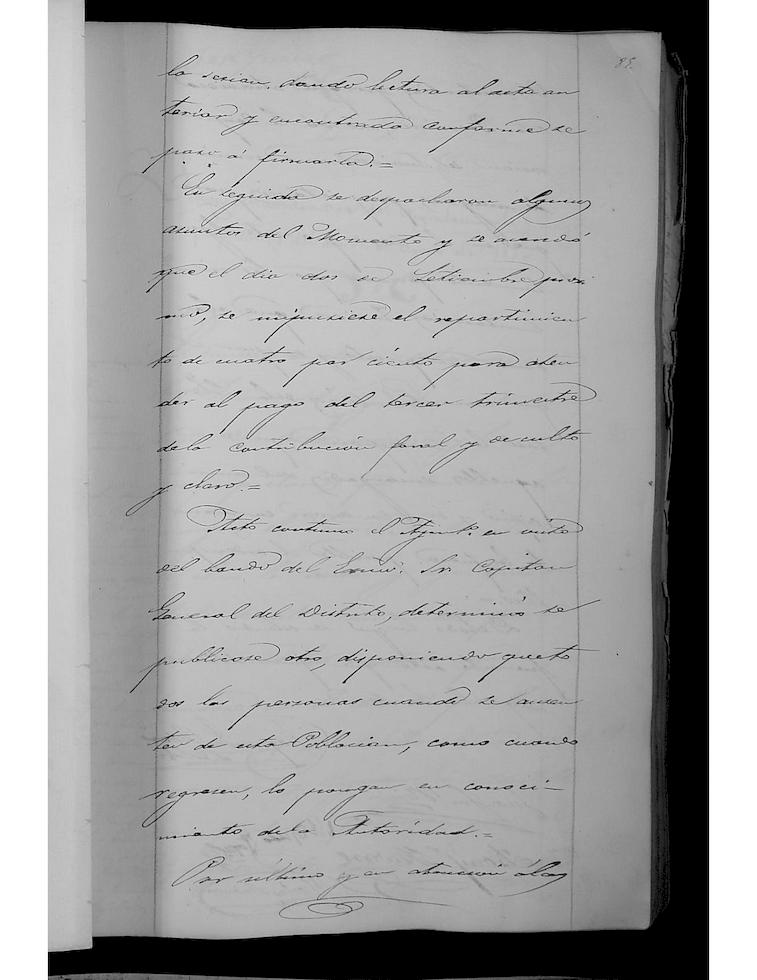 85.
la sesion, dando lectura al acta an
terior y encontrada conforme se
paso á firmarla.=
En seguida se despacharon algunos
asuntos del Momento y se acordó
que el dia dos de Setiembre proxi
mo, se impusiese el repartimien
to de cuatro por ciento para aten
der al pago del tercer trimestre
de la contribucion foral y de culto
y clero.=
Acto continuo el Ayunt.º en vista
del bando del Exmo. Sr. Capitan
General del Distrito, determinó se
publicase otro, disponiendo que to
das las personas cuando se ausen
ten de esta Poblacion, como cuando
regresen, lo pongan en conoci-
miento de la Autoridad.=
Por último y en atencion á las